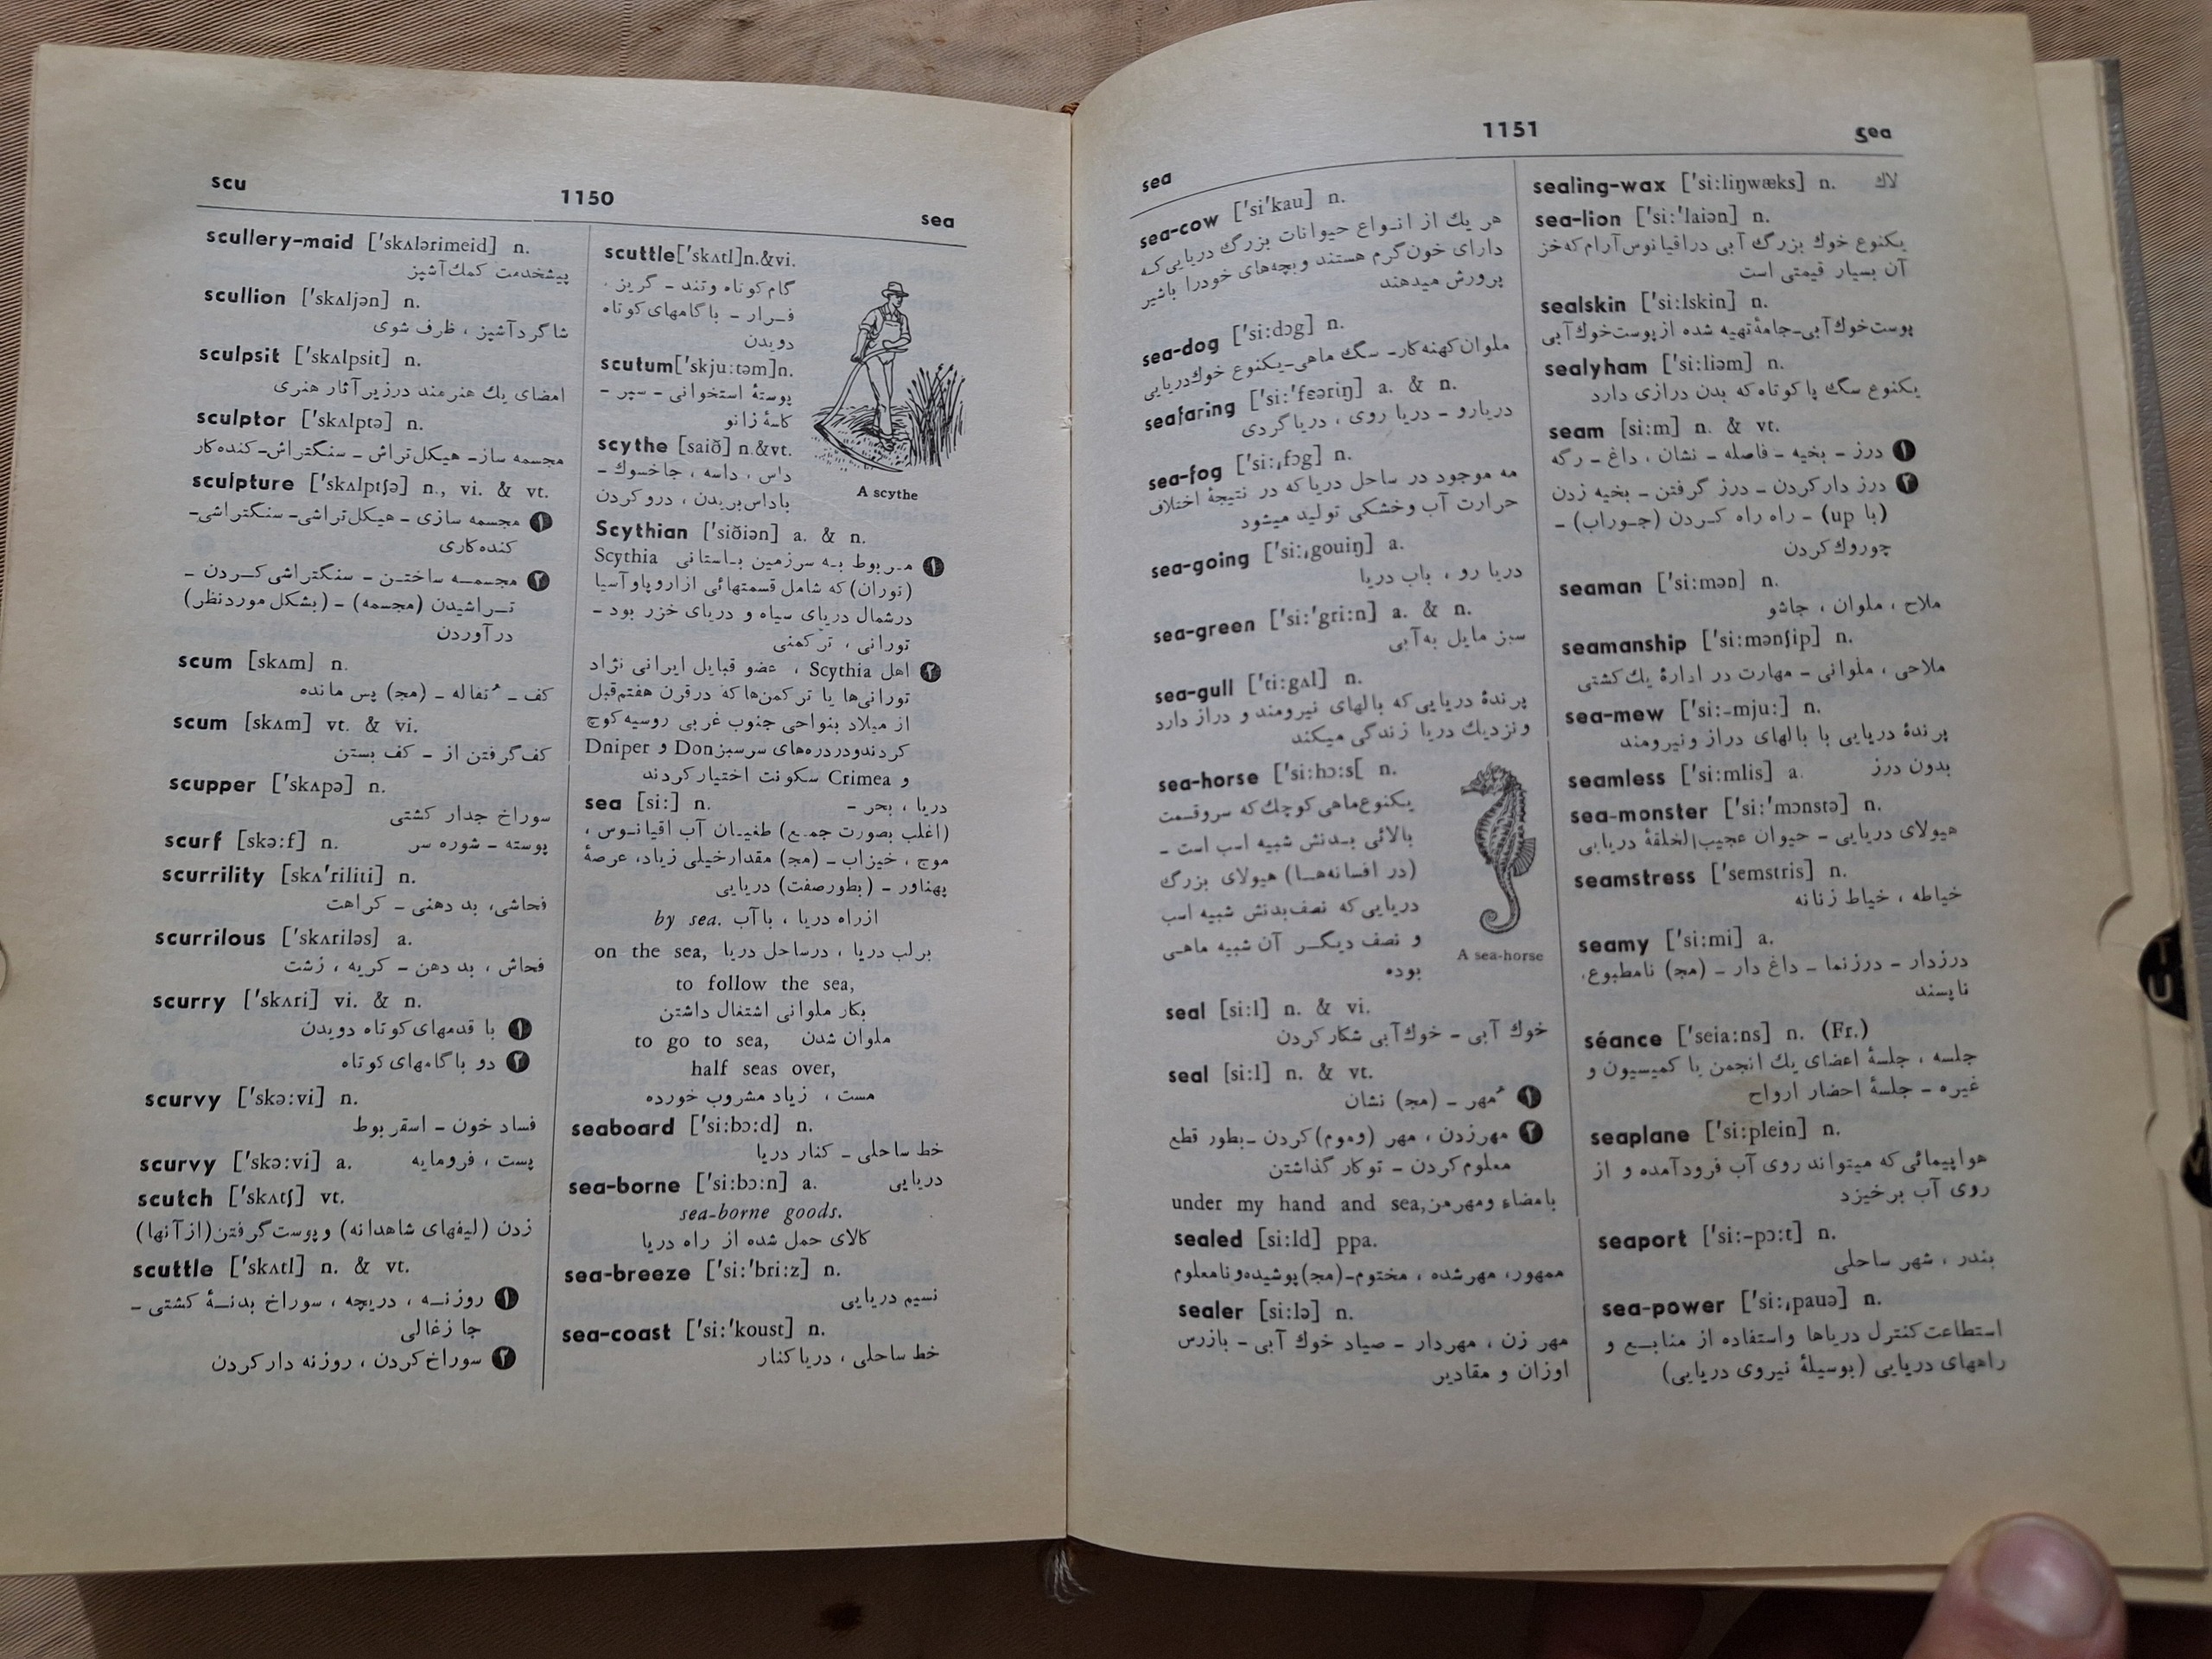 scu
1150
sea
scullery-maid ['skʌlərimeid] n.
پیشخدمت کمك‌آشپز
scullion ['skʌljən] n.
شاگردآشپز ، ظرف شوی
sculpsit ['skʌlpsit] n.
امضای یك هنرمند درزیرآثار هنری
sculptor ['skʌlptə] n.
مجسمه ساز– هیکل‌تراش – سنگتراش– کنده‌کار
sculpture ['skʌlptʃə] n., vi. & vt.
۱ مجسمه سازی – هیکل‌تراشی– سنگتراشی–
کنده‌کاری
۲ مجسمه ساختن – سنگتراشی کردن –
تراشیدن (مجسمه) – (بشکل موردنظر)
درآوردن
scum [skʌm] n.
کف – ُتفاله – (مج) پس مانده
scum [skʌm] vt. & vi.
کف‌گرفتن از – کف بستن
scupper ['skʌpə] n.
سوراخ جدار کشتی
scurf [skə:f] n. پوسته – شوره سر
scurrility [skʌ'riliti] n.
فحاشی، بد دهنی – کراهت
scurrilous ['skʌriləs] a.
فحاش ، بد دهن – کریه ، زشت
scurry ['skʌri] vi. & n.
۱ با قدمهای کوتاه دویدن
۲ دو باگامهای کوتاه
scurvy ['skə:vi] n.
فساد خون – اسقربوط
scurvy ['skə:vi] a. پست ، فرومایه
scutch ['skʌtʃ] vt.
زدن (لیفهای شاهدانه) وپوست گرفتن(ازآنها)
scuttle ['skʌtl] n. & vt.
۱ روزنه ، دریچه ، سوراخ بدنۀ کشتی –
جا زغالی
۲ سوراخ‌کردن ، روزنه دارکردن
scuttle['skʌtl]n.&vi.
گام کوتاه وتند – گریز ،
فرار – باگامهای کوتاه
دویدن
scutum['skju:təm]n.
پوستۀ استخوانی – سپر –
کاسۀ زانو
scythe [saið] n.&vt.
داس ، داسه ، جاخسوك –
باداس‌بریدن ، دروکردن
A scythe
Scythian ['siðiən] a. & n.
۱ مربوط به سرزمین باستانی Scythia
(توران) که شامل قسمتهائی ازاروپاوآسیا
درشمال دریای سیاه و دریای خزر بود –
تورانی ، ترکمنی
۲ اهل Scythia ، عضو قبایل ایرانی نژاد
تورانی‌ها یا ترکمن‌ها که درقرن هفتم‌قبل
از میلاد بنواحی جنوب غربی روسیه‌کوچ
کردندودردره‌های سرسبزDon و Dniper
و Crimea سکونت اختیارکردند
sea [si:] n. دریا ، بحر –
(اغلب بصورت جمع) طغیان آب اقیانوس ،
موج ، خیزاب – (مج) مقدارخیلی زیاد، عرصۀ
پهناور – (بطورصفت) دریایی
by sea. ازراه دریا ، باآب
on the sea, برلب دریا ، درساحل دریا
to follow the sea,
بکار ملوانی اشتغال داشتن
to go to sea, ملوان شدن
half seas over,
مست ، زیاد مشروب خورده
seaboard ['si:bɔ:d] n.
خط ساحلی – کنار دریا
sea-borne ['si:bɔ:n] a. دریایی
sea-borne goods.
کالای حمل شده از راه دریا
sea-breeze ['si:'bri:z] n.
نسیم دریایی
sea-coast ['si:'koust] n.
خط ساحلی ، دریاکنار
sea
1151
sea
sea-cow ['si'kau] n.
هر یك از انواع حیوانات بزرگ دریایی‌که
دارای خون‌گرم هستند وبچه‌های خودرا باشیر
پرورش میدهند
sea-dog ['si:dɔg] n.
ملوان‌کهنه‌کار– سگ ماهی–یکنوع خوك‌دریایی
seafaring ['si:'fɛəriŋ] a. & n.
دریارو – دریا روی ، دریاگردی
sea-fog ['si:,fɔg] n.
مه موجود در ساحل دریاکه در نتیجۀ اختلاف
حرارت آب وخشکی تولید میشود
sea-going ['si:,gouiŋ] a.
دریا رو ، باب دریا
sea-green ['si:'gri:n] a. & n.
سبز مایل به‌آبی
sea-gull ['ti:gʌl] n.
پرندۀ دریایی‌که بالهای نیرومند و دراز دارد
ونزدیك دریا زندگی میکند
sea-horse ['si:hɔ:s[ n.
یکنوع‌ماهی‌کوچك‌که سروقسمت
بالائی بدنش شبیه اسب است –
(در افسانه‌ها) هیولای بزرگ
دریایی‌که نصف‌بدنش شبیه اسب
و نصف دیگر آن شبیه ماهی
بوده
A sea-horse
seal [si:l] n. & vi.
خوك آبی – خوك‌آبی شکارکردن
seal [si:l] n. & vt.
۱ ُمهر – (مج) نشان
۲ مهرزدن ، مهر (وموم)کردن –بطور قطع
معلوم‌کردن – توکار گذاشتن
under my hand and sea, بامضاء ومهرمن
sealed [si:ld] ppa.
ممهور، مهرشده ، مختوم–(مج)پوشیده‌ونامعلوم
sealer [si:lə] n.
مهر زن ، مهردار – صیاد خوك آبی – بازرس
اوزان و مقادیر
sealing-wax ['si:liŋwæks] n. لاك
sea-lion ['si:'laiən] n.
یکنوع خوك بزرگ آبی دراقیانوس‌آرام‌که‌خز
آن بسیار قیمتی است
sealskin ['si:lskin] n.
پوست‌خوك‌آبی–جامۀتهیه شده ازپوست‌خوك‌آبی
sealyham ['si:liəm] n.
یکنوع سگ پاکوتاه‌که بدن درازی دارد
seam [si:m] n. & vt.
۱ درز – بخیه – فاصله – نشان ، داغ – رگه
۲ درز دارکردن – درز گرفتن – بخیه زدن
(با up) – راه راه کردن (جوراب) –
چوروك‌کردن
seaman ['si:mən] n.
ملاح ، ملوان ، جاشو
seamanship ['si:mənʃip] n.
ملاحی ، ملوانی – مهارت در ادارۀ یك‌کشتی
sea-mew ['si:-mju:] n.
پرندۀ دریایی با بالهای دراز ونیرومند
seamless ['si:mlis] a. بدون درز
sea-monster ['si:'mɔnstə] n.
هیولای دریایی – حیوان عجیب‌الخلقۀ دریایی
seamstress ['semstris] n.
خیاطه ، خیاط زنانه
seamy ['si:mi] a.
درزدار – درزنما – داغ دار – (مج) نامطبوع،
ناپسند
séance ['seia:ns] n. (Fr.)
جلسه ، جلسۀ اعضای یك انجمن یا کمیسیون و
غیره – جلسۀ احضار ارواح
seaplane ['si:plein] n.
هواپیمائی‌که میتواند روی آب فرودآمده و از
روی آب برخیزد
seaport ['si:-pɔ:t] n.
بندر ، شهر ساحلی
sea-power ['si:,pauə] n.
استطاعت‌کنترل دریاها واستفاده از منابع و
راههای دریایی (بوسیلۀ نیروی دریایی)
T
U
V